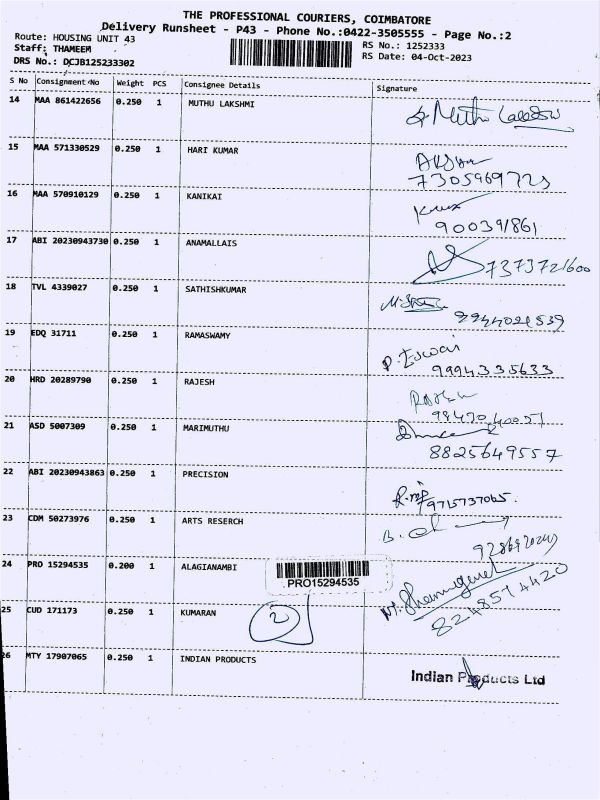 THE PROFESSIONAL COURIERS, COIMBATORE
Delivery Runsheet - P43 - Phone No.:0422-3505555 - Page No.:2
Route: HOUSING UNIT 43
RS No.: 1252333
Staff: THAMEEM
RS Date: 04-Oct-2023
DRS No.: DCJB125233302
S No Consignment No Weight PCS Consignee Details Signature
14 MAA 861422656 0.250 1 MUTHU LAKSHMI
15 MAA 571330529 0.250 1 HARI KUMAR
7305969723
16 MAA 570910129 0.250 1 KANIKAI
900391861
17 ABI 20230943730 0.250 1 ANAMALLAIS
7373721600
18 TVL 4339027 0.250 1 SATHISHKUMAR
9944021539
19 EDQ 31711 0.250 1 RAMASWAMY
P. Eswari
9994335633
20 HRD 20289790 0.250 1 RAJESH
21 ASD 5007309 0.250 1 MARIMUTHU
8825649557
22 ABI 20230943863 0.250 1 PRECISION
9715737065.
23 CDM 50273976 0.250 1 ARTS RESERCH
24 PRO 15294535 0.200 1 ALAGIANAMBI
PRO15294535
8248514420
25 CUD 171173 0.250 1 KUMARAN
2
26 MTY 17907065 0.250 1 INDIAN PRODUCTS
Indian Products Ltd